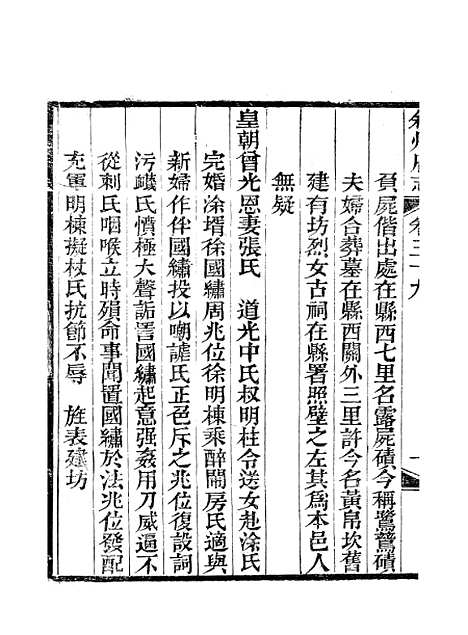 負屍偕出處在縣西七里名露屍磧今稱鴛鴦磧
夫婦合葬墓在縣西關外三里許今名黃帛坎舊
建有坊烈女古祠在縣署照壁之左其爲本邑人
無疑
皇朝曾光恩妻張氏　道光中氏叔明柱令送女赴涂氏
完婚涂壻徐國繡周兆位徐明棟乘醉鬧房氏適與
新婦作伴國繡投以嘲謔氏正色斥之兆位復設詞
污衊氏憤極大聲詬詈國繡起意强姦用刀威逼不
從刺氏咽喉立時殞命事聞置國繡於法兆位發配
充軍明棟擬杖氏抗節不辱　旌表建坊
卷三十九